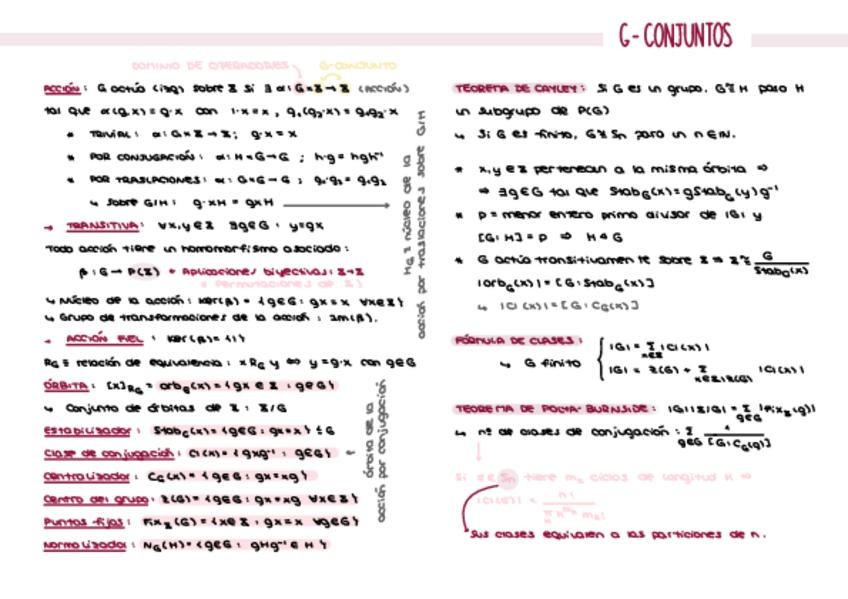 G-CONJUNTOS
DOMINIO DE OPERADORES
G-CONJUNTO
ACCIÓN: G actúa (izq) sobre X si ∃ α: G×X→X (ACCIÓN)
tal que α(g,x) = g·x con 1·x = x, g₁(g₂·x) = g₁g₂·x
* TRIVIAL: α: G×X→X; g·x = x
* POR CONJUGACIÓN: α: H×G→G; h·g = hgh⁻¹
* POR TRASLACIONES: α: G×G→G; g₁·g₂ = g₁g₂
↳ Sobre G/H: g·xH = gxH
→ TRANSITIVA: ∀x,y∈X ∃g∈G: y=gx
Toda acción tiene un homomorfismo asociado:
β: G→P(X) → Aplicaciones biyectivas: X→X
= Permutaciones de X
↳ Núcleo de la acción: Ker(β) = {g∈G: gx = x ∀x∈X}
↳ Grupo de transformaciones de la acción: Im(β).
→ ACCIÓN FIEL: Ker(β) = {1}
R_G ≡ relación de equivalencia: x R_G y ⇔ y = g·x con g∈G
ÓRBITA: [x]R_G = orb_G(x) = {gx ∈ X : g∈G}
↳ Conjunto de órbitas de X: X/G
Estabilizador: Stab_G(x) = {g∈G: gx = x} ≤ G
Clase de conjugación: Cl(x) = {gxg⁻¹: g∈G} ←
Centralizador: C_G(x) = {g∈G: gx = xg}
Centro del grupo: Z(G) = {g∈G: gx = xg ∀x∈X}
Puntos fijos: Fix_X(G) = {x∈X: gx = x ∀g∈G}
Normalizador: N_G(H) = {g∈G: gHg⁻¹ ∈ H}
H_G ≡ núcleo de la
acción por traslaciones sobre G/H
órbita de la
acción por conjugación
TEOREMA DE CAYLEY: Si G es un grupo, G≅H para H
un subgrupo de P(G)
↳ Si G es finito, G≅Sn para un n∈ℕ.
* x,y∈X pertenecen a la misma órbita ⇒
⇒ ∃g∈G tal que Stab_G(x) = gStab_G(y)g⁻¹
* p = menor entero primo divisor de |G| y
[G:H] = p ⇒ H◁G
* G actúa transitivamente sobre X ⇒ X≅ G/Stab_G(x)
|orb_G(x)| = [G: Stab_G(x)]
↳ |Cl(x)| = [G: C_G(x)]
FÓRMULA DE CLASES:
|G| = Σ_{x∈X} |Cl(x)|
↳ G finito
|G| = Z(G) + Σ_{x∈X\Z(G)} |Cl(x)|
TEOREMA DE POLYA-BURNSIDE: |G||X/G| = Σ_{g∈G} |Fix_X(g)|
↳ nº de clases de conjugación: Σ_{g∈G} 1/[G:C_G(g)]
tiene m_k ciclos de longitud k ⇒
Sus clases equivalen a las particiones de n.